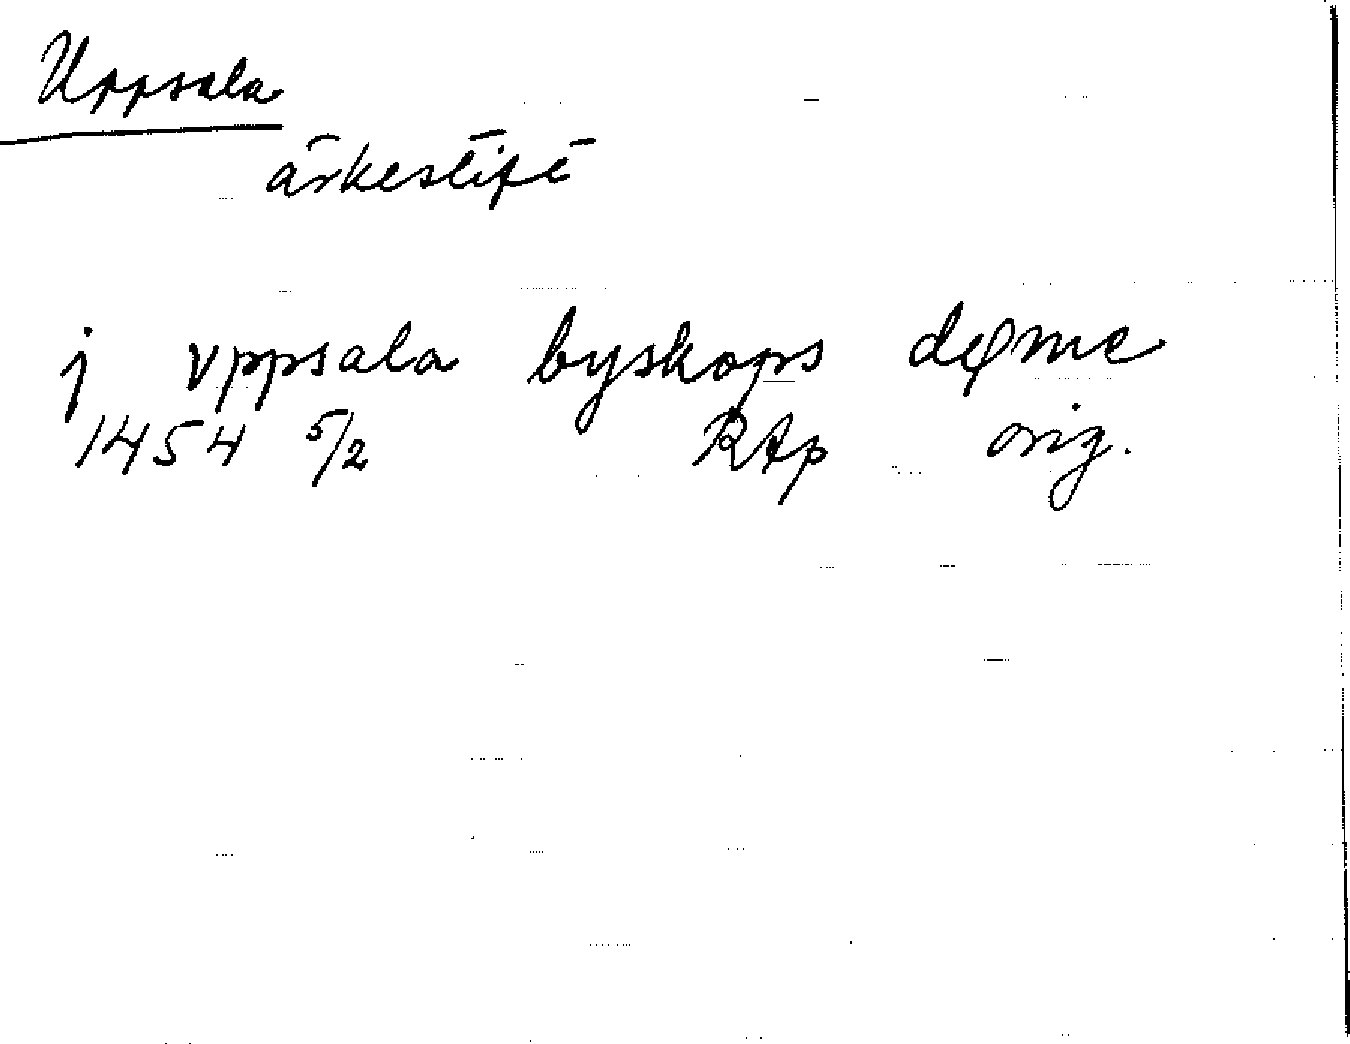 Uppsala
ärkestift
j vppsala byskops døme
1454 5/2 RAp orig.